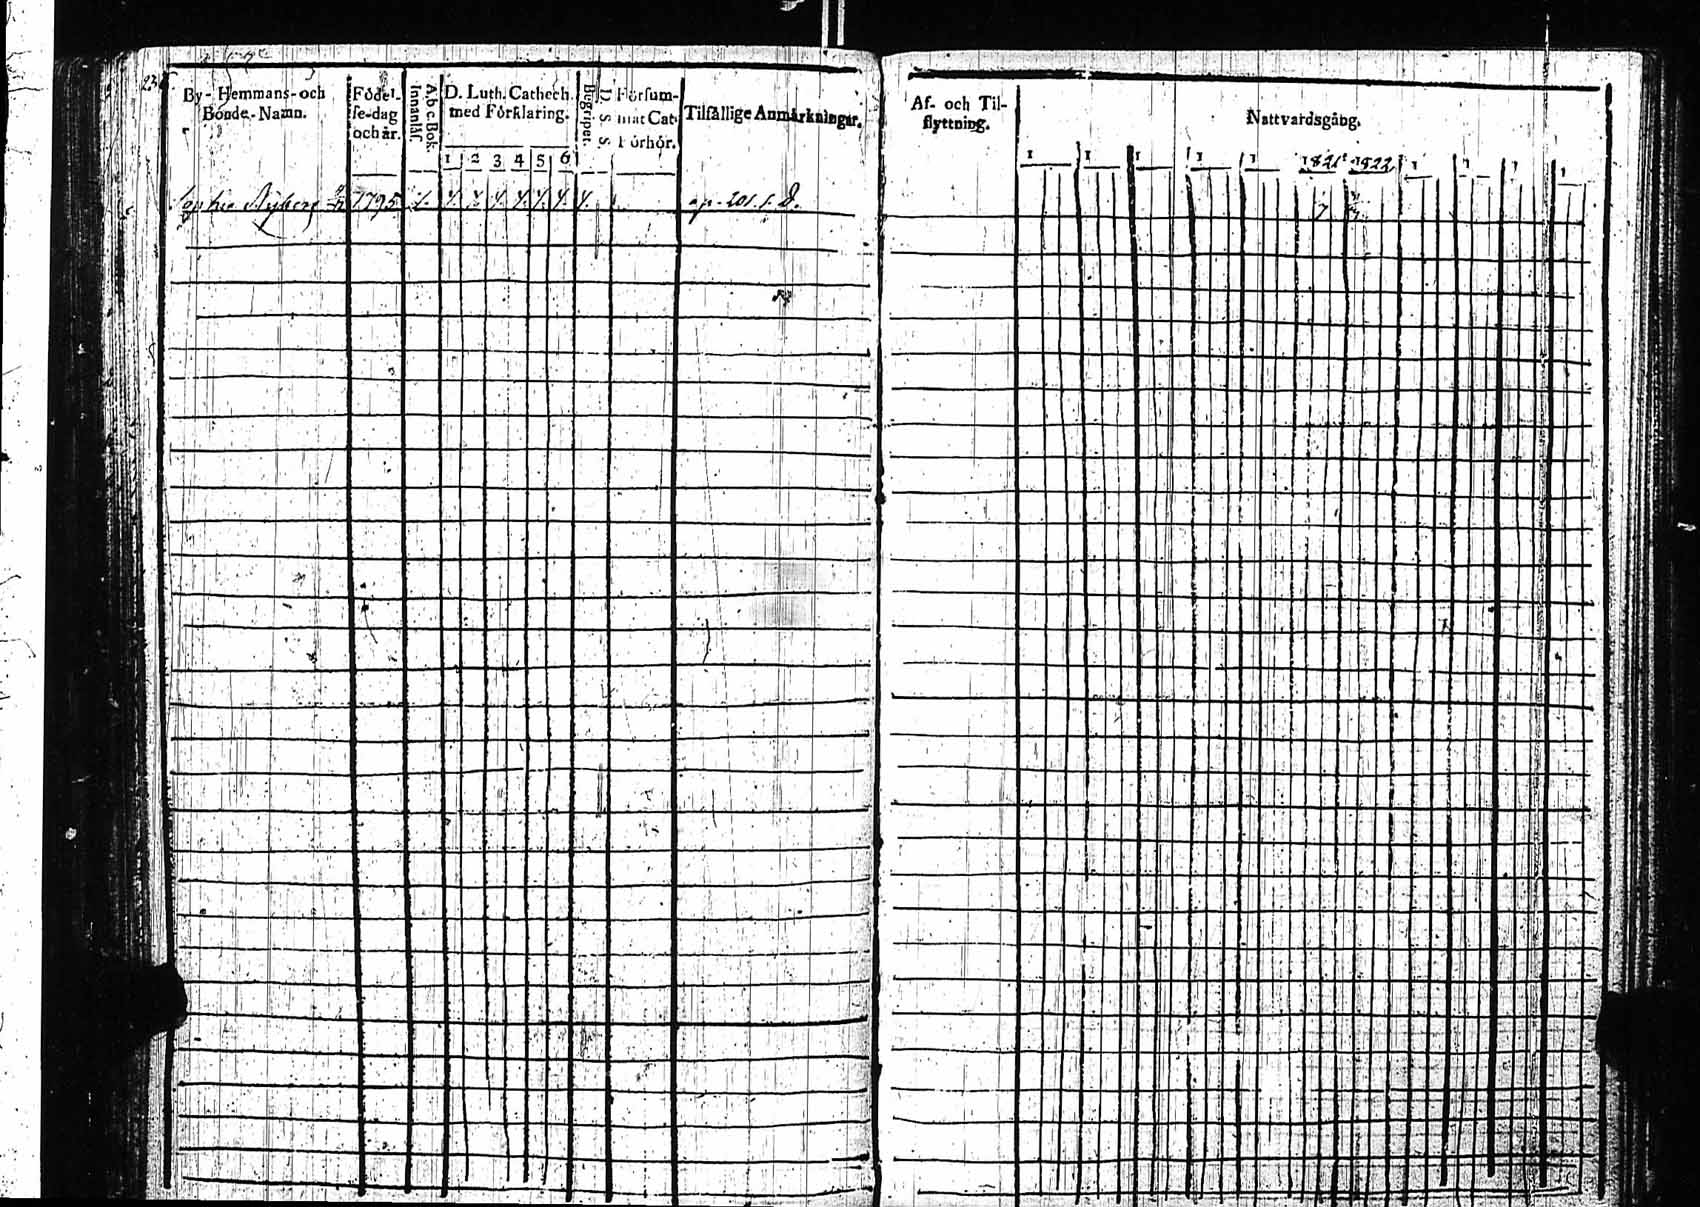 By- Hemmans- och Bonde- Namn.
Födel-
se-dag
och år.
A b c. Bok.
Innanläs.
D. Luth. Cathech.
med Förklaring.
1 2 3 4 5 6
Begriper.
D. S. S.
Försum-
mat Cat.
Förhör.
Tilfällige Anmärkningar.
Sophia Nyberg 1795
Af- och Til-
flyttning.
Nattvardsgång.
1 1 1 1 1 1821 1822 1 1 1 1